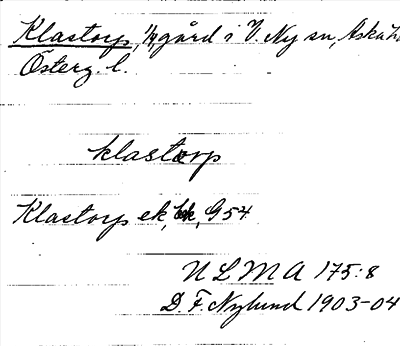 Klastorp, gård i V. Ny sn, Aska
Österg. l.
klastorp
Klastorp ek, G54
ULMA 175:8
D. F. Nylund 1903-04